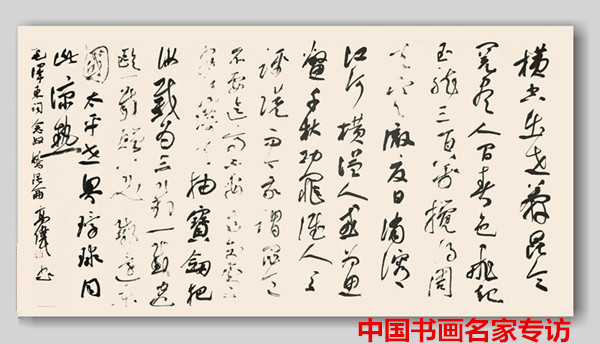 横空出世莽昆仑
阅尽人间春色飞起
玉龙三百万搅得周
天寒彻夏日消溶
江河横溢人或为鱼
鳖千秋功罪谁人
评说而今我谓昆仑
不要这高不要这多雪
安得倚天抽寶劍把
汝裁为三截一截遗
欧一截赠美一截还东
國太平世界環球同
此凉熱
毛澤東词念奴娇昆仑 高 书
中国书画名家专访